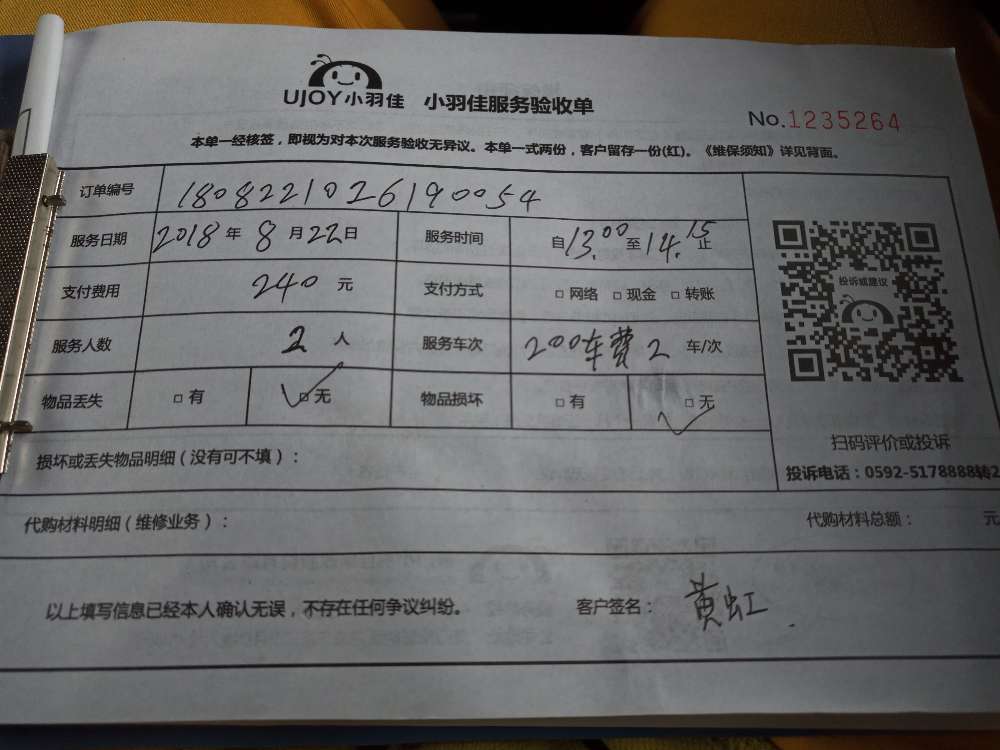 UJOY小羽佳 小羽佳服务验收单
No.1235264
本单一经核签，即视为对本次服务验收无异议。本单一式两份，客户留存一份(红)。《维保须知》详见背面。
订单编号 1808221026190054
服务日期 2018年8月22日 服务时间 自13.00至14.15止
支付费用 240元 支付方式 □网络 □现金 □转账
服务人数 2人 服务车次 200车费2车/次
物品丢失 □有 □无 物品损坏 □有 □无
投诉或建议
扫码评价或投诉
投诉电话：0592-5178888转2
损坏或丢失物品明细（没有可不填）：
代购材料明细（维修业务）： 代购材料总额： 元
以上填写信息已经本人确认无误，不存在任何争议纠纷。 客户签名：黄虹